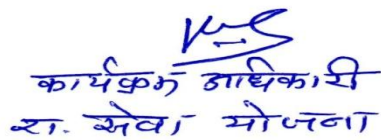 कार्यक्रम अधिकारी
रा. सेवा योजना